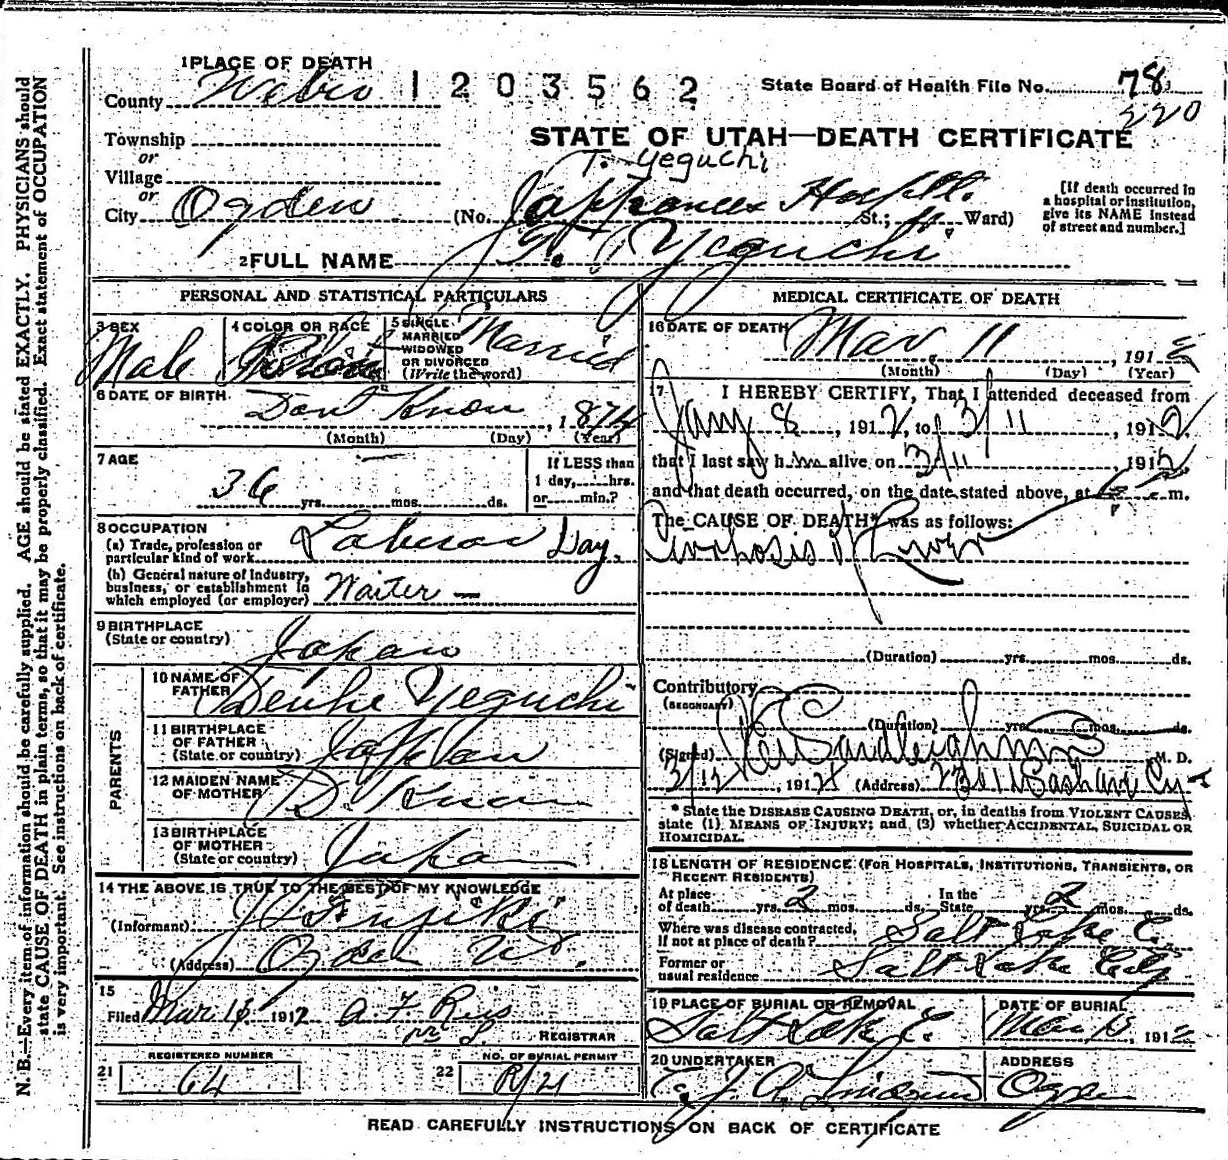 1 PLACE OF DEATH
County Weber 1203562 State Board of Health File No. 78
220
Township
or
Village
or
City Ogden
STATE OF UTAH—DEATH CERTIFICATE
T. Yeguchi
(No. Japponees Hosptl. St.; Ward)
[If death occurred in a hospital or institution, give its NAME instead of street and number.]
2 FULL NAME T. Yeguchi
PERSONAL AND STATISTICAL PARTICULARS
3 SEX
Male
4 COLOR OR RACE
5 SINGLE
MARRIED
WIDOWED
OR DIVORCED
(Write the word)
Married
6 DATE OF BIRTH
Dont Know, 1874
(Month) (Day) (Year)
7 AGE
36 yrs. mos. ds.
If LESS than
1 day, hrs.
or min.?
8 OCCUPATION
(a) Trade, profession or
particular kind of work Laberor Day.
(b) General nature of industry,
business, or establishment in
which employed (or employer) Waiter —
9 BIRTHPLACE
(State or country) Japan
PARENTS
10 NAME OF
FATHER Yeguchi
11 BIRTHPLACE
OF FATHER
(State or country) Japan
12 MAIDEN NAME
OF MOTHER D. Know
13 BIRTHPLACE
OF MOTHER
(State or country) Japan
14 THE ABOVE IS TRUE TO THE BEST OF MY KNOWLEDGE
(Informant) Fujiki
(Address) Ogden Ut.
15
Filed Mar. 13 1912 A. F.
REGISTRAR
REGISTERED NUMBER
21 64
NO. OF BURIAL PERMIT
22
MEDICAL CERTIFICATE OF DEATH
16 DATE OF DEATH
Mar 11, 1912
(Month) (Day) (Year)
17 I HEREBY CERTIFY, That I attended deceased from
Jany 8, 1912, to 3/11, 1912
that I last saw him alive on 3/11, 1912
and that death occurred, on the date stated above, at m.
The CAUSE OF DEATH* was as follows:
Cirrhosis of Liver
(Duration) yrs. mos. ds.
Contributory
(SECONDARY)
(Duration) yrs. mos. ds.
(Signed) M. D.
3/12, 1912 (Address)
* State the DISEASE CAUSING DEATH, or, in deaths from VIOLENT CAUSES,
state (1) MEANS OF INJURY; and (3) whether ACCIDENTAL, SUICIDAL OR
HOMICIDAL.
18 LENGTH OF RESIDENCE (FOR HOSPITALS, INSTITUTIONS, TRANSIENTS, OR
RECENT RESIDENTS)
At place
of death yrs. 2 mos. ds. In the
State yrs. 2 mos. ds.
Where was disease contracted,
if not at place of death? Salt Lake C.
Former or
usual residence Salt Lake City
19 PLACE OF BURIAL OR REMOVAL
Salt Lake C.
DATE OF BURIAL
Mar 13, 1912
20 UNDERTAKER
ADDRESS
Ogden
READ CAREFULLY INSTRUCTIONS ON BACK OF CERTIFICATE
N. B.—Every item of information should be carefully supplied. AGE should be stated EXACTLY. PHYSICIANS should
state CAUSE OF DEATH in plain terms, so that it may be properly classified. Exact statement of OCCUPATION
is very important. See instructions on back of certificate.